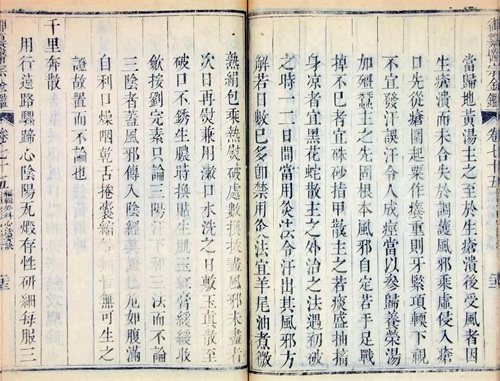 當歸地黃湯主之至於生瘡潰後受風者因
生瘡潰而未合失於調護風邪乘虛侵入瘡
口先從瘡圍起粟作癢重則牙緊項輭下視
不宜發汗誤汗令人成痙當以參歸養榮湯
加殭蠶主之先固根本風邪自定若手足戰
掉不已者宜硃砂指甲散主之若痰盛抽搐
身涼者宜黑花蛇散主之外治之法遇初破
之時一二日間當用灸法令汗出其風邪方
解若日數已多即禁用灸法宜羊尾油煮微
熱絹包乘熱熨破處數換拭盡風邪未盡者
次日再熨兼用漱口水洗之日敷玉真散至
破口不銹生膿時換貼生肌玉紅膏緩緩收
斂按劉定素只論三陽汗下和三法而不論
三陰者蓋風邪傳入陰經其證已危如腹滿
自利口燥咽乾舌捲囊縮等類皆無可生之
證故置而不論也
千里奔散
用行遠路騾蹄心陰陽瓦煅存性研細每服三